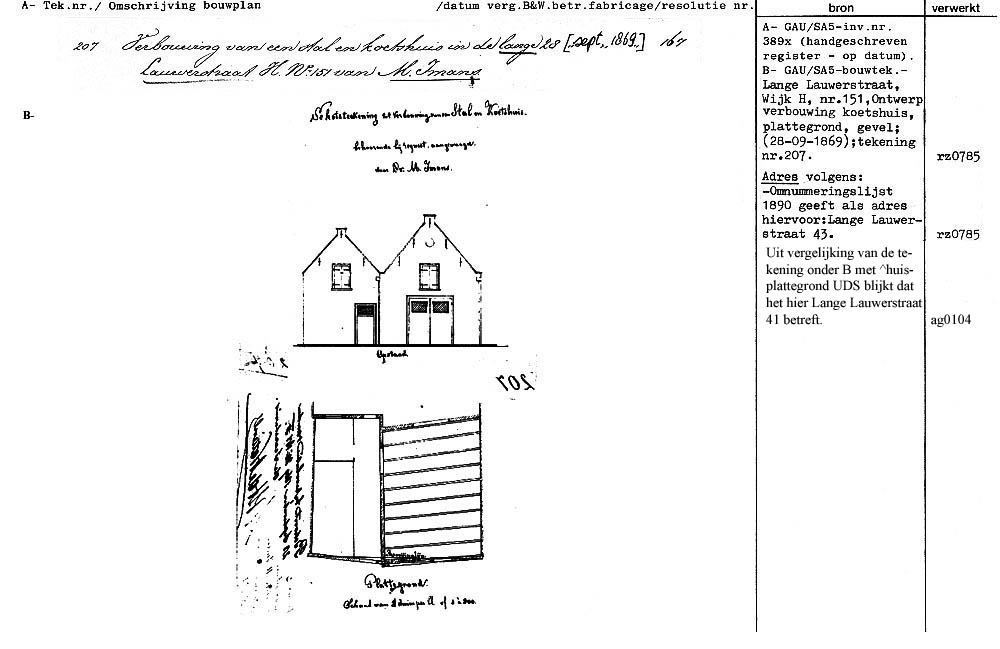 A- Tek.nr./ Omschrijving bouwplan /datum verg.B&W.betr.fabricage/resolutie nr.
bron
verwerkt
207 Verbouwing van een stal en koetshuis in de lange 28 [sept, 1869] 167
Lauwerstraat H. No. 151 van M. Imans
B-
Stal en Koetshuis.
door Dr. M. Imans.
Opstand
207
Plattegrond.
A- GAU/SA5-inv.nr.
389x (handgeschreven
register - op datum).
B- GAU/SA5-bouwtek.-
Lange Lauwerstraat,
Wijk H, nr.151,Ontwerp
verbouwing koetshuis,
plattegrond, gevel;
(28-09-1869);tekening
nr.207.
rz0785
Adres volgens:
-Omnummeringslijst
1890 geeft als adres
hiervoor:Lange Lauwer-
straat 43.
rz0785
Uit vergelijking van de te-
kening onder B met ^huis-
plattegrond UDS blijkt dat
het hier Lange Lauwerstraat
41 betreft.
ag0104